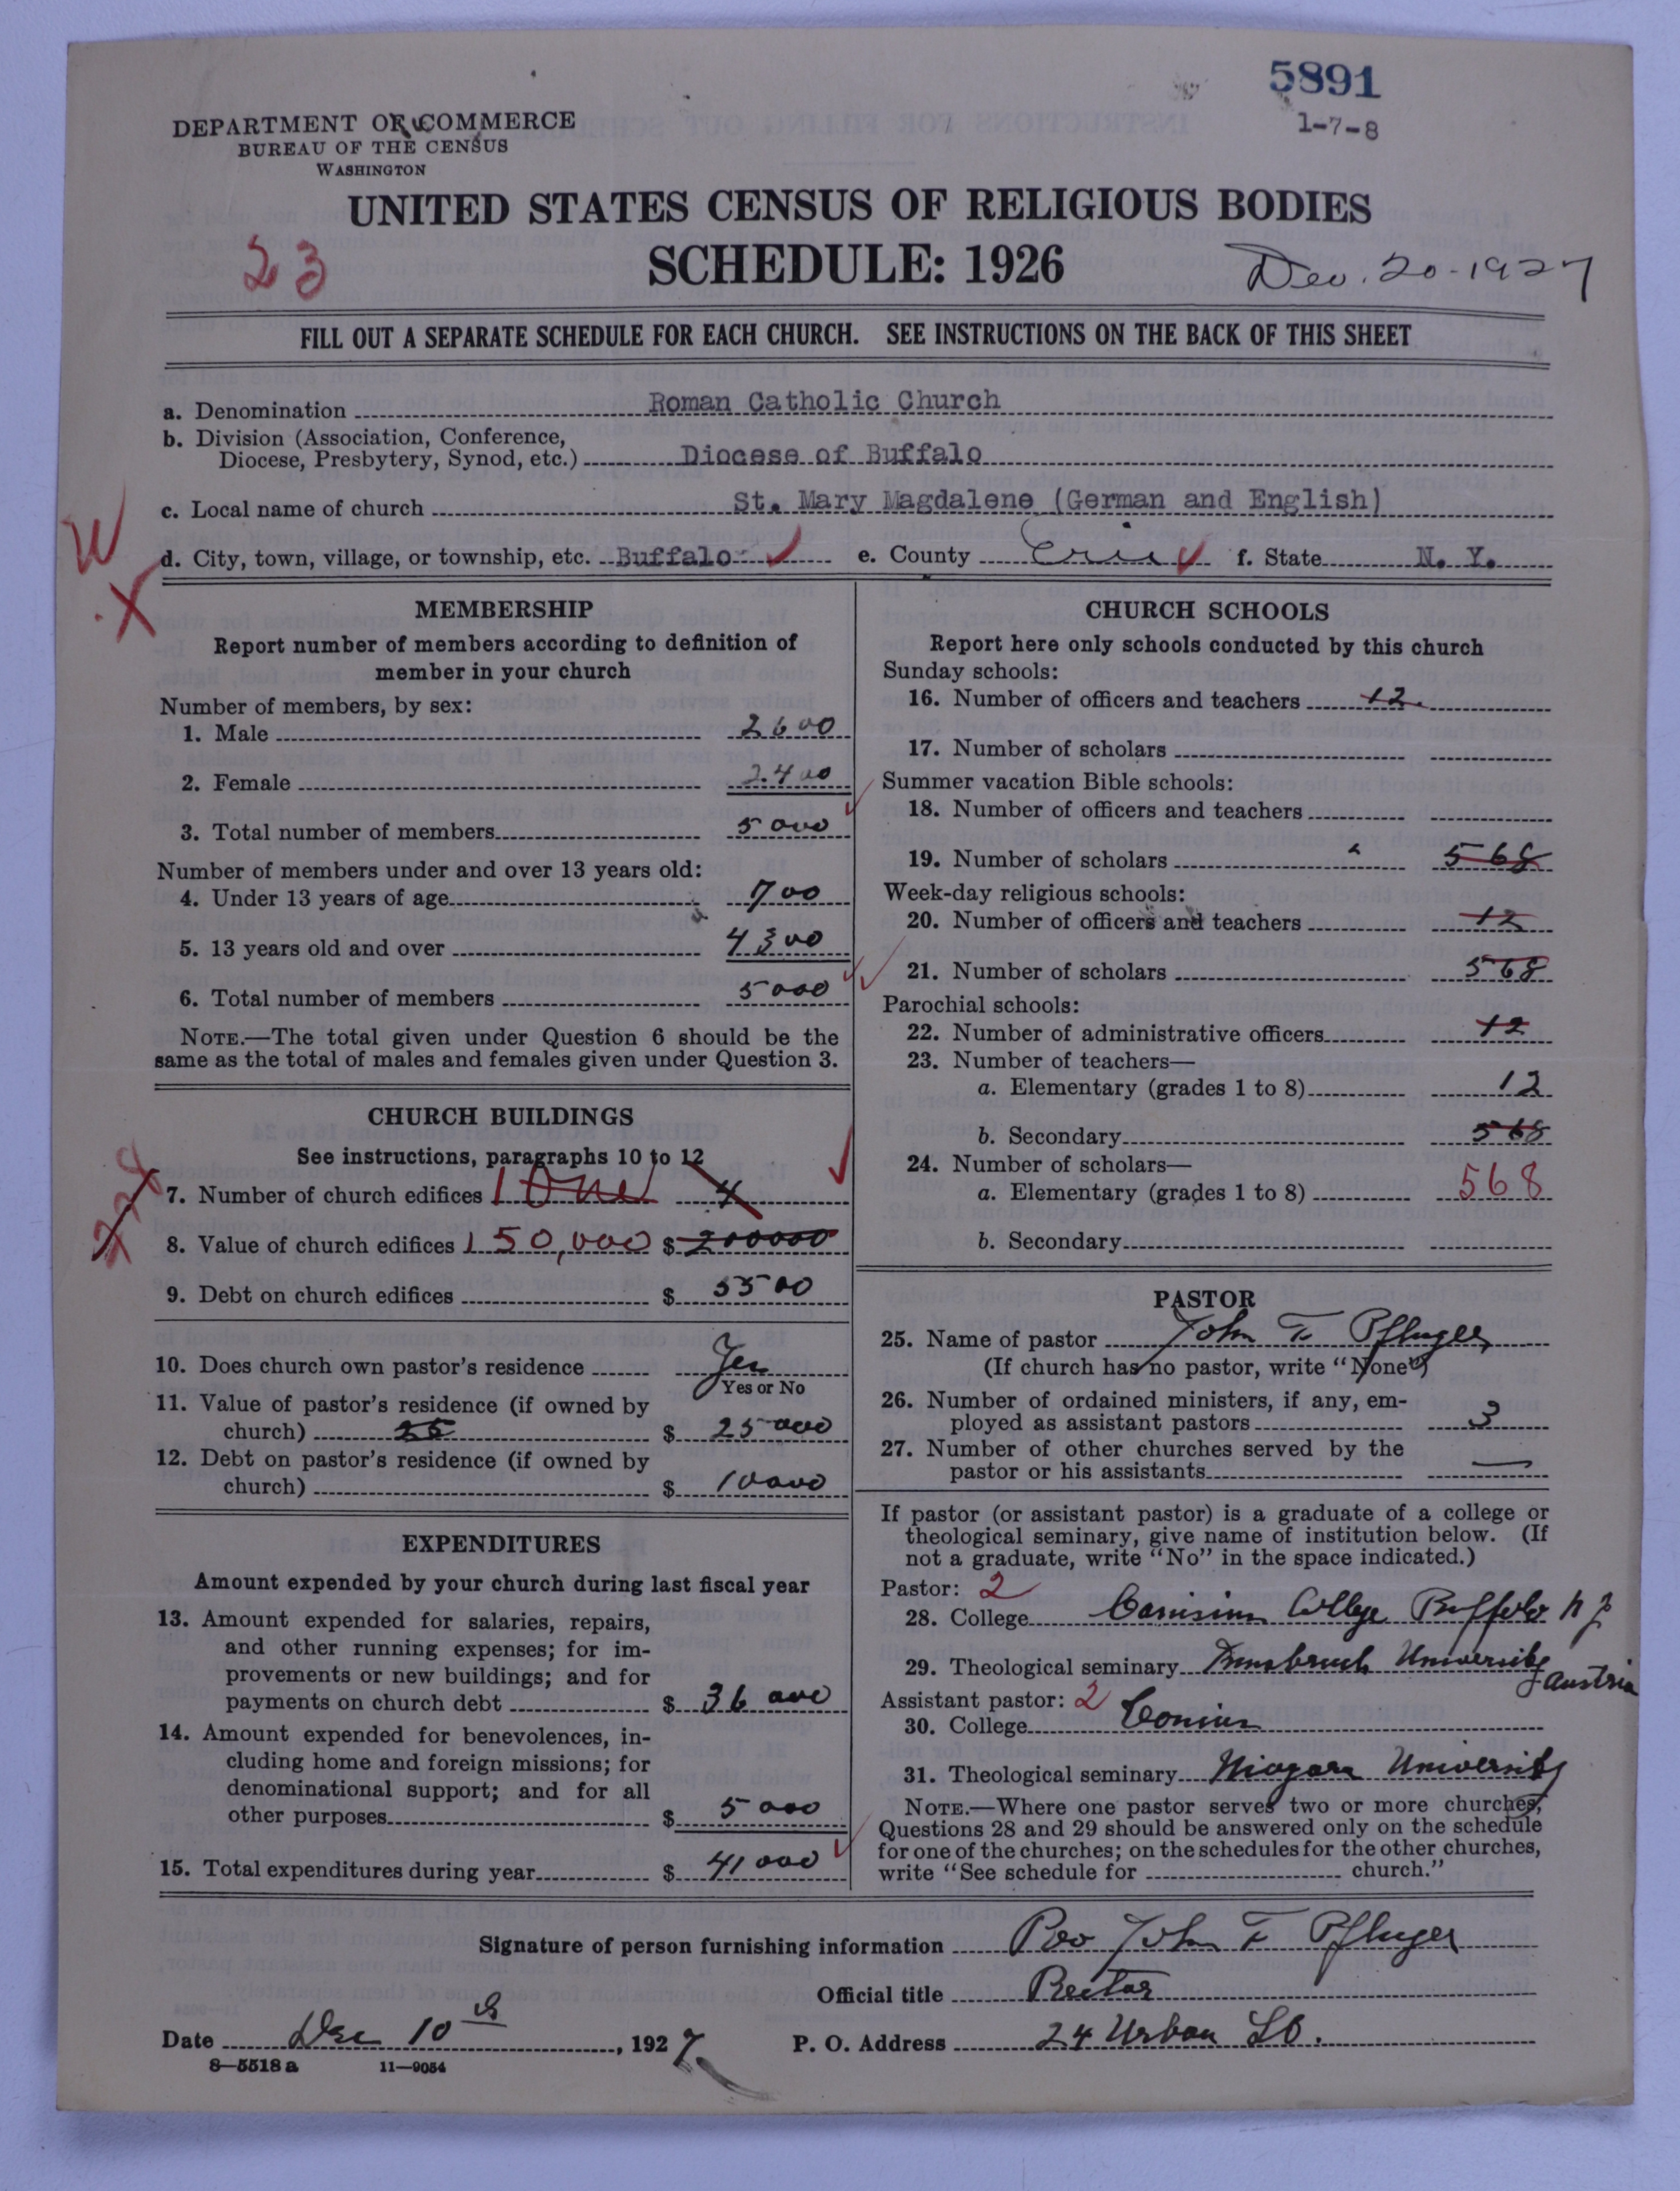 5891
1-7-8
DEPARTMENT OF COMMERCE
BUREAU OF THE CENSUS
WASHINGTON
UNITED STATES CENSUS OF RELIGIOUS BODIES
SCHEDULE: 1926
23
Dec. 20-1927
FILL OUT A SEPARATE SCHEDULE FOR EACH CHURCH. SEE INSTRUCTIONS ON THE BACK OF THIS SHEET
a. Denomination Roman Catholic Church
b. Division (Association, Conference,
Diocese, Presbytery, Synod, etc.) Diocese of Buffalo
c. Local name of church St. Mary Magdalene (German and English)
W
d. City, town, village, or township, etc. Buffalo e. County Erie f. State N. Y.
X
MEMBERSHIP
Report number of members according to definition of
member in your church
Number of members, by sex:
1. Male 2600
2. Female 2400
3. Total number of members 5000
Number of members under and over 13 years old:
4. Under 13 years of age 700
5. 13 years old and over 4300
6. Total number of members 5000
NOTE.—The total given under Question 6 should be the
same as the total of males and females given under Question 3.
CHURCH BUILDINGS
See instructions, paragraphs 10 to 12
7. Number of church edifices 1 One 4
8. Value of church edifices 150,000 $ 200000
9. Debt on church edifices $ 5500
10. Does church own pastor's residence Yes
Yes or No
11. Value of pastor's residence (if owned by
church) 25 $ 25000
12. Debt on pastor's residence (if owned by
church) $ 10000
EXPENDITURES
Amount expended by your church during last fiscal year
13. Amount expended for salaries, repairs,
and other running expenses; for im-
provements or new buildings; and for
payments on church debt $ 36000
14. Amount expended for benevolences, in-
cluding home and foreign missions; for
denominational support; and for all
other purposes $ 5000
15. Total expenditures during year $ 41000
CHURCH SCHOOLS
Report here only schools conducted by this church
Sunday schools:
16. Number of officers and teachers 12
17. Number of scholars
Summer vacation Bible schools:
18. Number of officers and teachers
19. Number of scholars 568
Week-day religious schools:
20. Number of officers and teachers 12
21. Number of scholars 568
Parochial schools:
22. Number of administrative officers 12
23. Number of teachers—
a. Elementary (grades 1 to 8) 12
b. Secondary 568
24. Number of scholars—
a. Elementary (grades 1 to 8) 568
b. Secondary
PASTOR
25. Name of pastor John F Pfluger
(If church has no pastor, write "None")
26. Number of ordained ministers, if any, em-
ployed as assistant pastors 3
27. Number of other churches served by the
pastor or his assistants —
If pastor (or assistant pastor) is a graduate of a college or
theological seminary, give name of institution below. (If
not a graduate, write "No" in the space indicated.)
Pastor: 2
28. College Canisius College Buffalo N Y
29. Theological seminary Innsbruck University
Austria
Assistant pastor: 2
30. College
31. Theological seminary Niagara University
NOTE.—Where one pastor serves two or more churches,
Questions 28 and 29 should be answered only on the schedule
for one of the churches; on the schedules for the other churches,
write "See schedule for church."
Signature of person furnishing information Rev John F Pfluger
Official title Rector
Date Dec 10th, 1927 P. O. Address 24 Urban St.
8—5518 a 11—9054